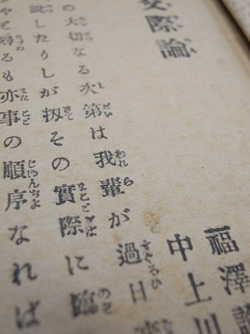 交際論
福澤
中上川
の大切なる次第は我輩が過日
説したりしが扨その實際に臨
やを尋るも亦事の順序なれば